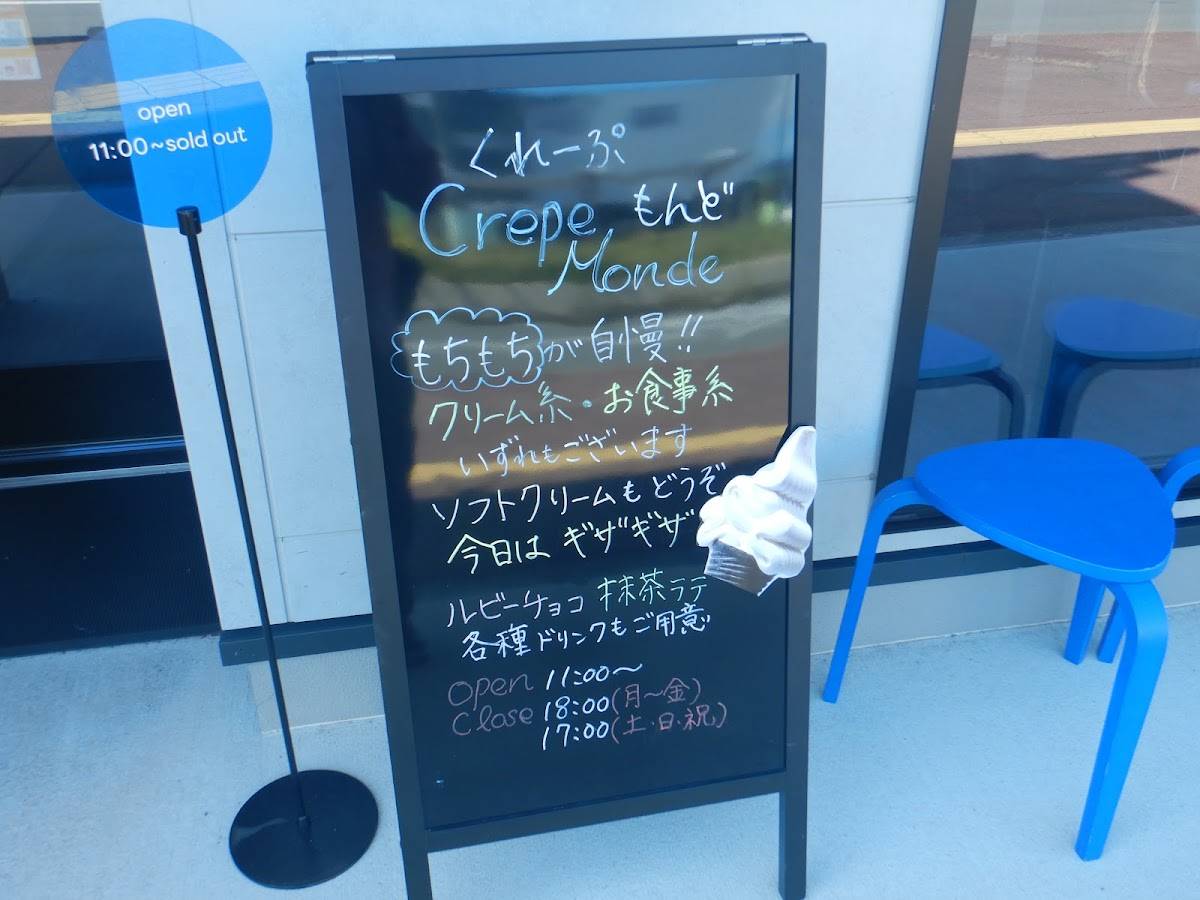 open
11:00~sold out
くれーぷ
Crepe もんど
Monde
もちもちが自慢!!
クリーム系・お食事系
いずれもございます
ソフトクリームもどうぞ
今日は ギザギザ
ルビーチョコ 抹茶ラテ
各種ドリンクもご用意
open 11:00〜
Close 18:00(月〜金)
17:00(土・日・祝)